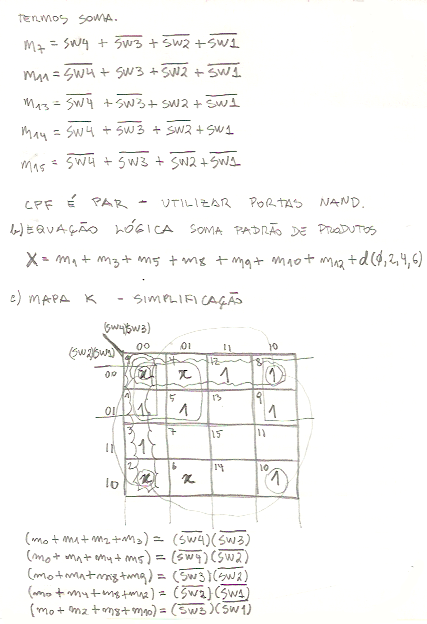 TERMOS SOMA.
m7 = SW4 + S̅W̅3̅ + S̅W̅2̅ + S̅W̅1̅
m11 = S̅W̅4̅ + SW3 + S̅W̅2̅ + S̅W̅1̅
m13 = S̅W̅4̅ + S̅W̅3̅ + SW2 + S̅W̅1̅
m14 = S̅W̅4̅ + S̅W̅3̅ + S̅W̅2̅ + SW1
m15 = S̅W̅4̅ + S̅W̅3̅ + S̅W̅2̅ + S̅W̅1̅
CPF É PAR - UTILIZAR PORTAS NAND.
b) EQUAÇÃO LÓGICA SOMA PADRÃO DE PRODUTOS
X = m1 + m3 + m5 + m8 + m9 + m10 + m12 + d(0,2,4,6)
c) MAPA K - SIMPLIFICAÇÃO
(SW4)(SW3)
(SW2)(SW1) 00 01 11 10
00 0 x 4 x 12 1 8 1
01 1 1 5 1 13 9 1
11 3 1 7 15 11
10 2 x 6 x 14 10 1
(m0 + m1 + m2 + m3) = (S̅W̅4̅)(S̅W̅3̅)
(m0 + m1 + m4 + m5) = (S̅W̅4̅)(S̅W̅2̅)
(m0 + m1 + m8 + m9) = (S̅W̅3̅)(S̅W̅2̅)
(m0 + m4 + m8 + m12) = (S̅W̅2̅)(S̅W̅1̅)
(m0 + m2 + m8 + m10) = (S̅W̅3̅)(S̅W̅1̅)